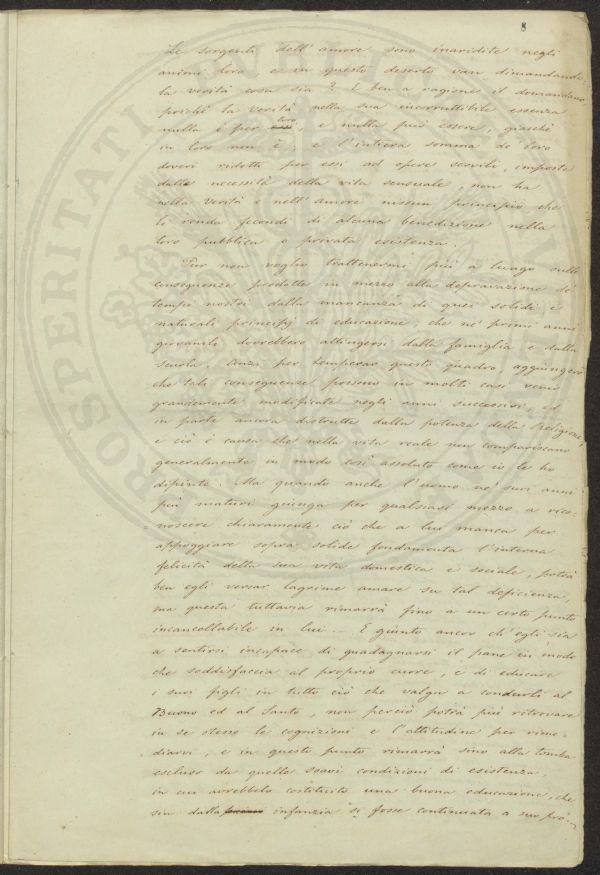 8
Le sorgenti dell'amore sono inaridite negli
animi loro e in questo deserto van dimandando
la verità cosa sia? E ben a ragione il domandano
poichè la Verità nella sua incorruttibile essenza
nulla è per loro, e nulla può essere, giacchè
in loro non è; e l'intiera somma de' loro
doveri ridotta per essi ad opere servili, imposte
dalle necessità della vita sensuale, non ha
nella Verità e nell'amore nissun principio che
li renda fecondi di alcuna benedizione nella
loro pubblica o privata esistenza.
Pur non voglio trattenermi più a lungo sulle
conseguenze prodotte in mezzo alla depravazione de'
tempi nostri dalla mancanza di quei solidi e
naturali principj di educazione, che ne' primi anni
giovanili dovrebbero attingersi dalla famiglia e dalla
scuola. Anzi per temperar questo quadro, aggiungerò
che tali conseguenze possono in molti casi venir
grandemente modificate negli anni successivi, ed
in parte ancora distrutte dalla potenza della Religione,
e ciò è causa che nella vita reale non compariscano
generalmente in modo così assoluto come io le ho
dipinte. Ma quando anche l'uomo ne' suoi anni
più maturi giunga per qualsiasi mezzo a rico-
noscere chiaramente ciò che a lui manca per
appoggiare sopra solide fondamenta l'interna
felicità della sua vita domestica e sociale, potrà
ben egli versar lagrime amare su tal deficienza,
ma questa tuttavia rimarrà fino a un certo punto
incancellabile in lui. E giunto ancor ch'egli sia
a sentirsi incapace di guadagnarsi il pane in modo
che soddisfaccia al proprio cuore, e di educare
i suoi figli in tutto ciò che valga a condurli al
Buono ed al Santo, non perciò potrà più ritrovare
in se stesso le cognizioni e l'attitudine per rime-
diarvi, e in questo punto rimarrà sino alla tomba
escluso da quelle soavi condizioni di esistenza,
in cui avrebbelo costituito una buona educazione, che
sin dalla infanzia si fosse continuata a suo prò.
PROSPERITATI PUBLICAE